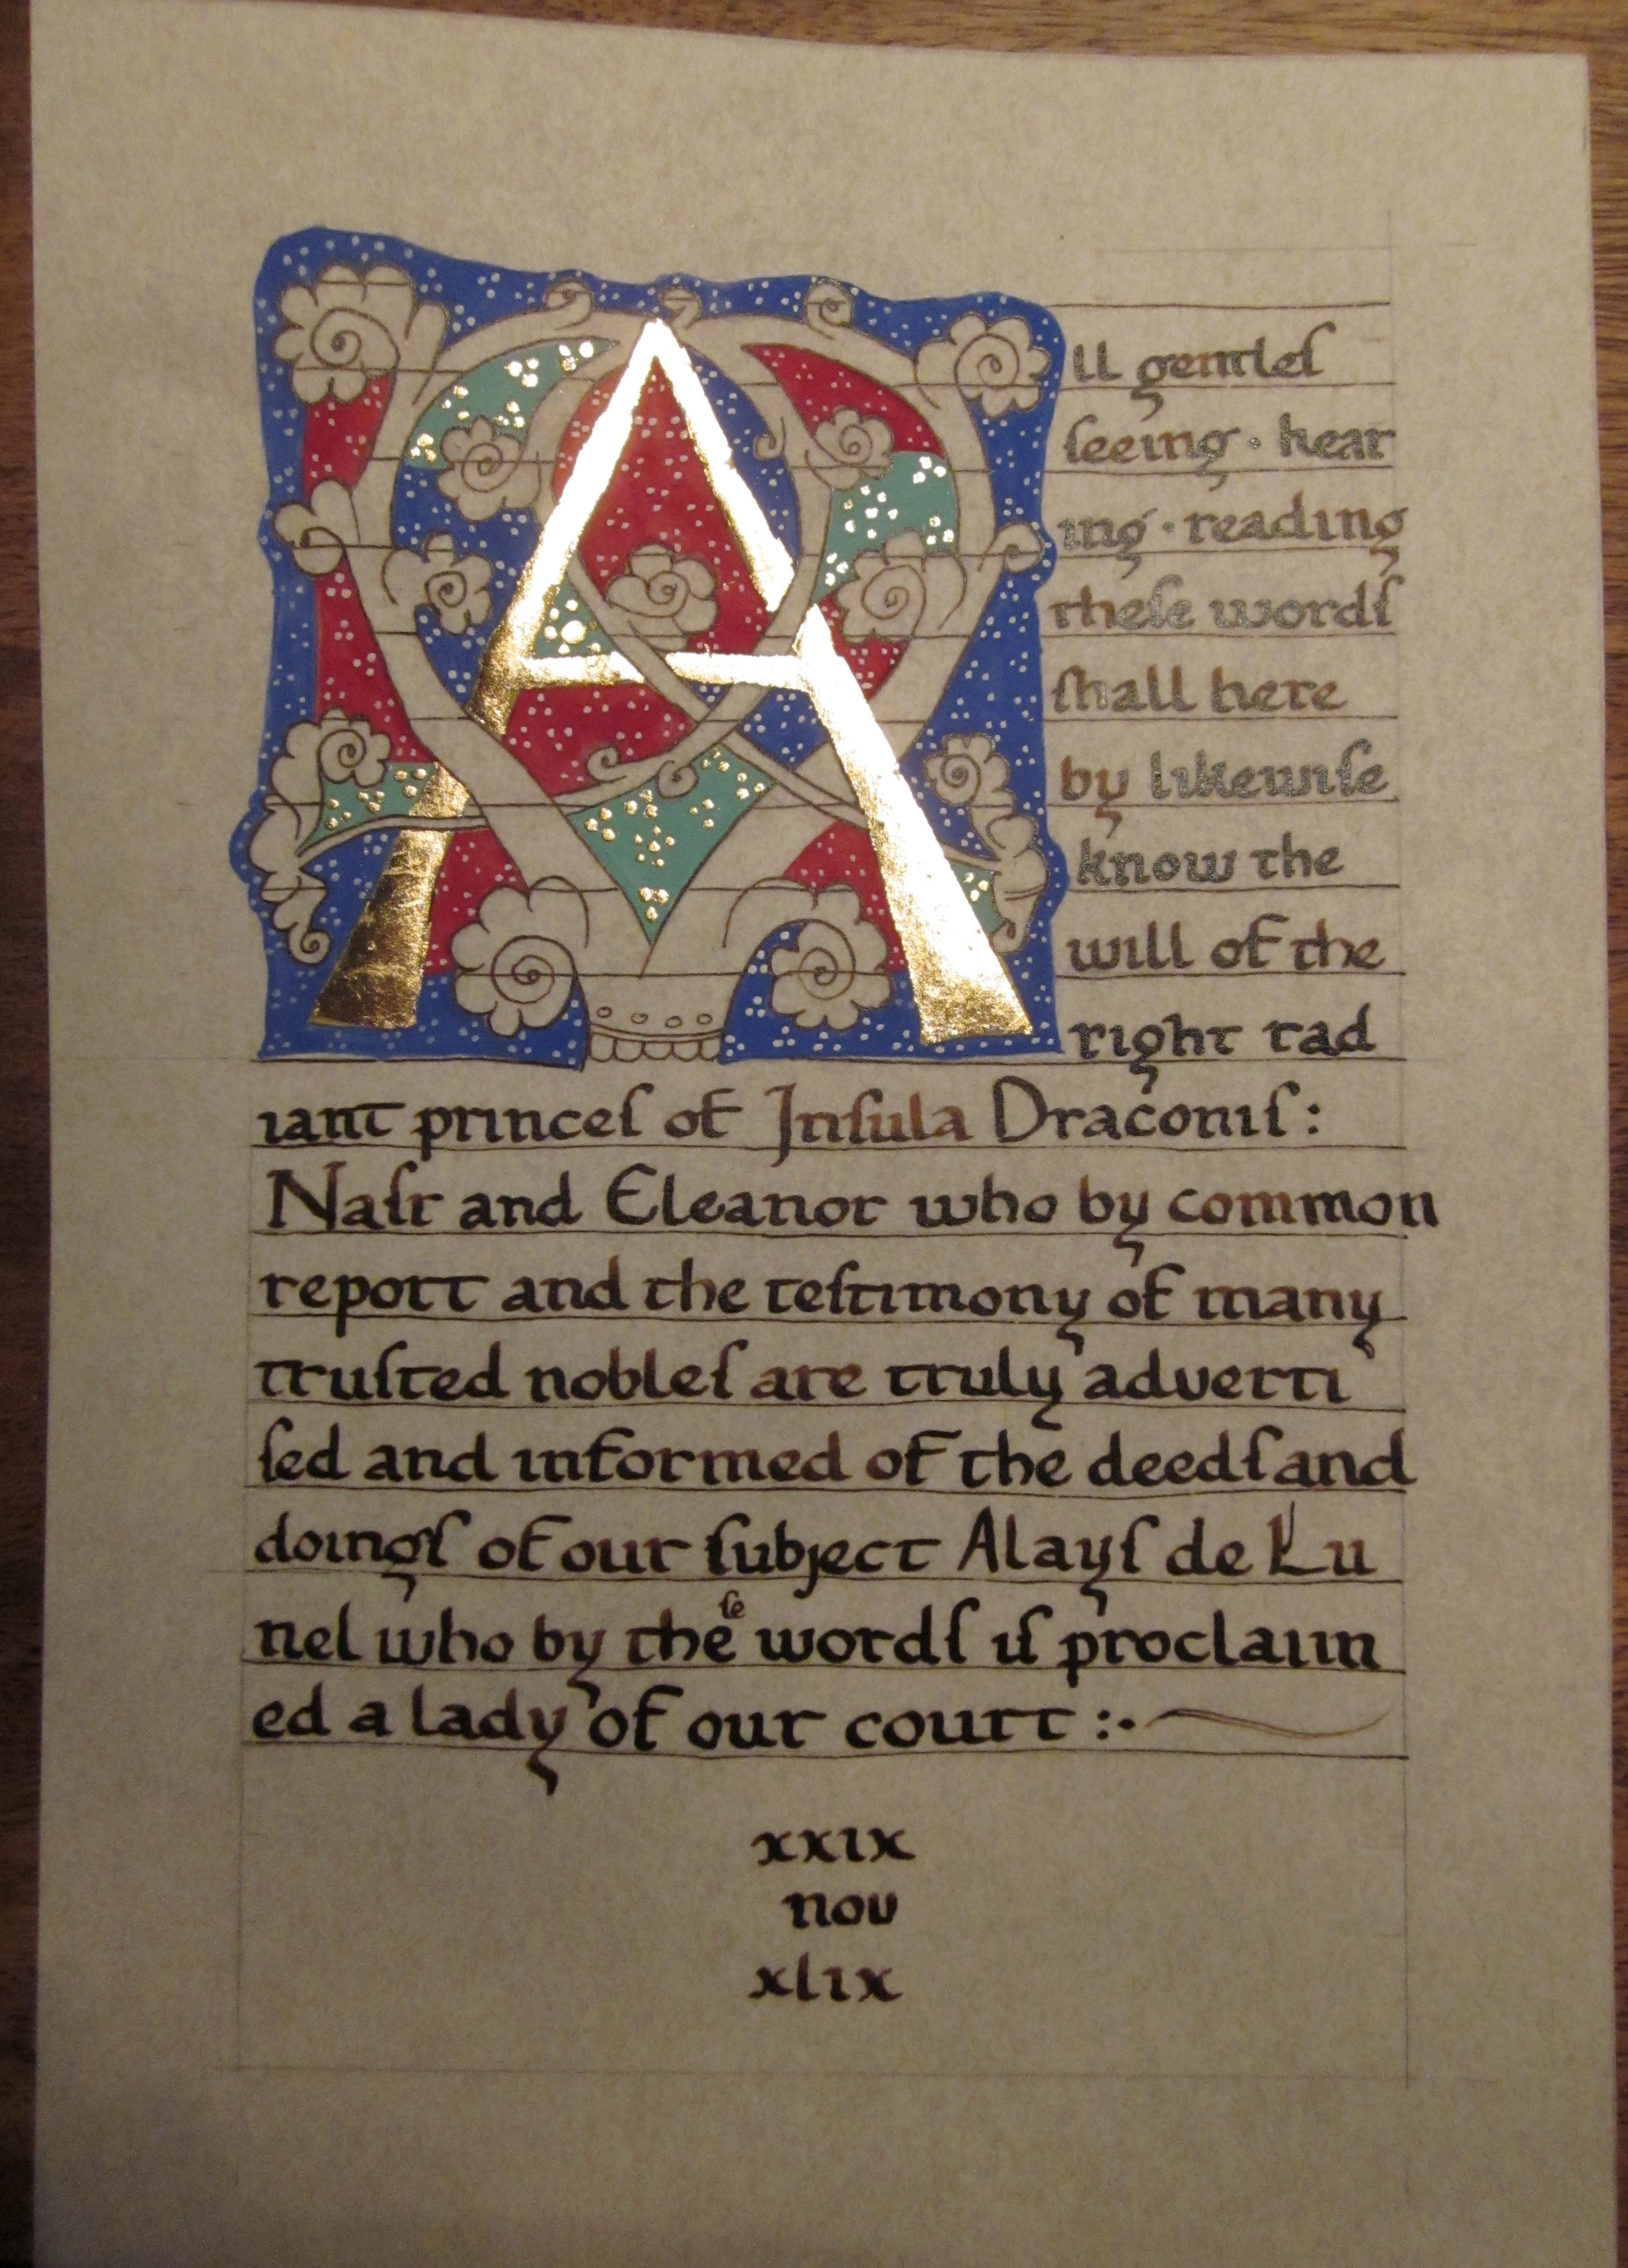 All gentleſ
ſeeing · hear
ing · reading
theſe wordſ
ſhall here
by likewiſe
know the
will of the
right rad
iant princeſ of Inſula Draconiſ :
Naſr and Eleanor who by common
report and the teſtimony of many
truſted nobleſ are truly adverti
ſed and informed of the deedſ and
doingſ of our ſubject Alayſ de Lu
nel who by theſe wordſ iſ proclaim
ed a lady of our court :·
xxix
nov
xlix